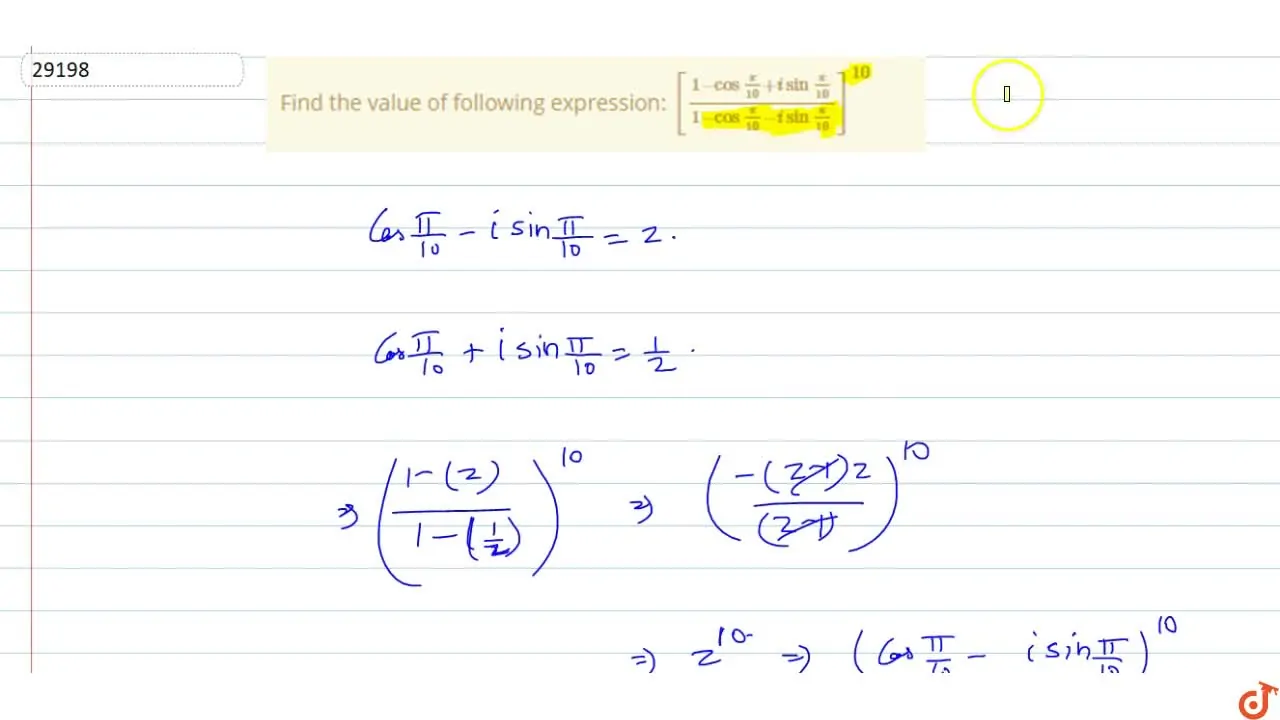 29198
Find the value of following expression: [(1-cos π/10 + i sin π/10)/(1-cos π/10 - i sin π/10)]^10
Cos π/10 - i sin π/10 = z.
Cos π/10 + i sin π/10 = 1/z.
⇒ ((1-(z))/(1-(1/z)))^10 ⇒ ((-(z-1)z)/((z-1)))^10
⇒ z^10 ⇒ (Cos π/10 - i sin π/10)^10